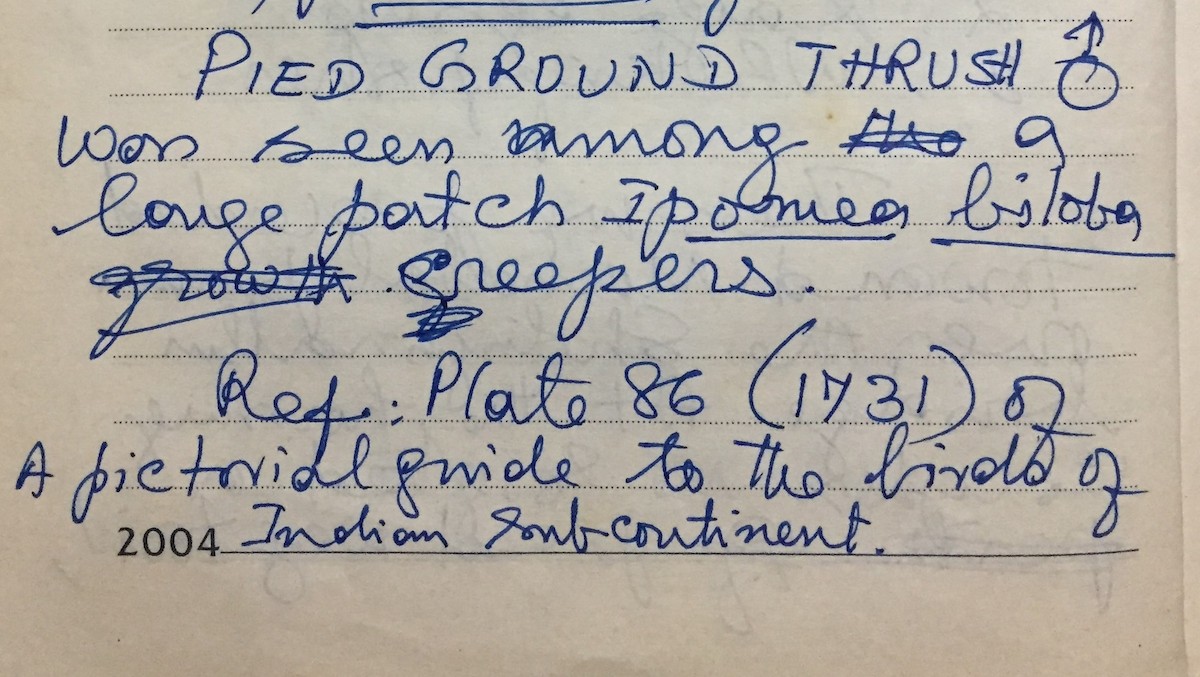 PIED GROUND THRUSH ♂
was seen among a
large patch Ipomea biloba
growth creepers.
Ref.: Plate 86 (1731) of
A pictorial guide to the birds of
2004 Indian Subcontinent.